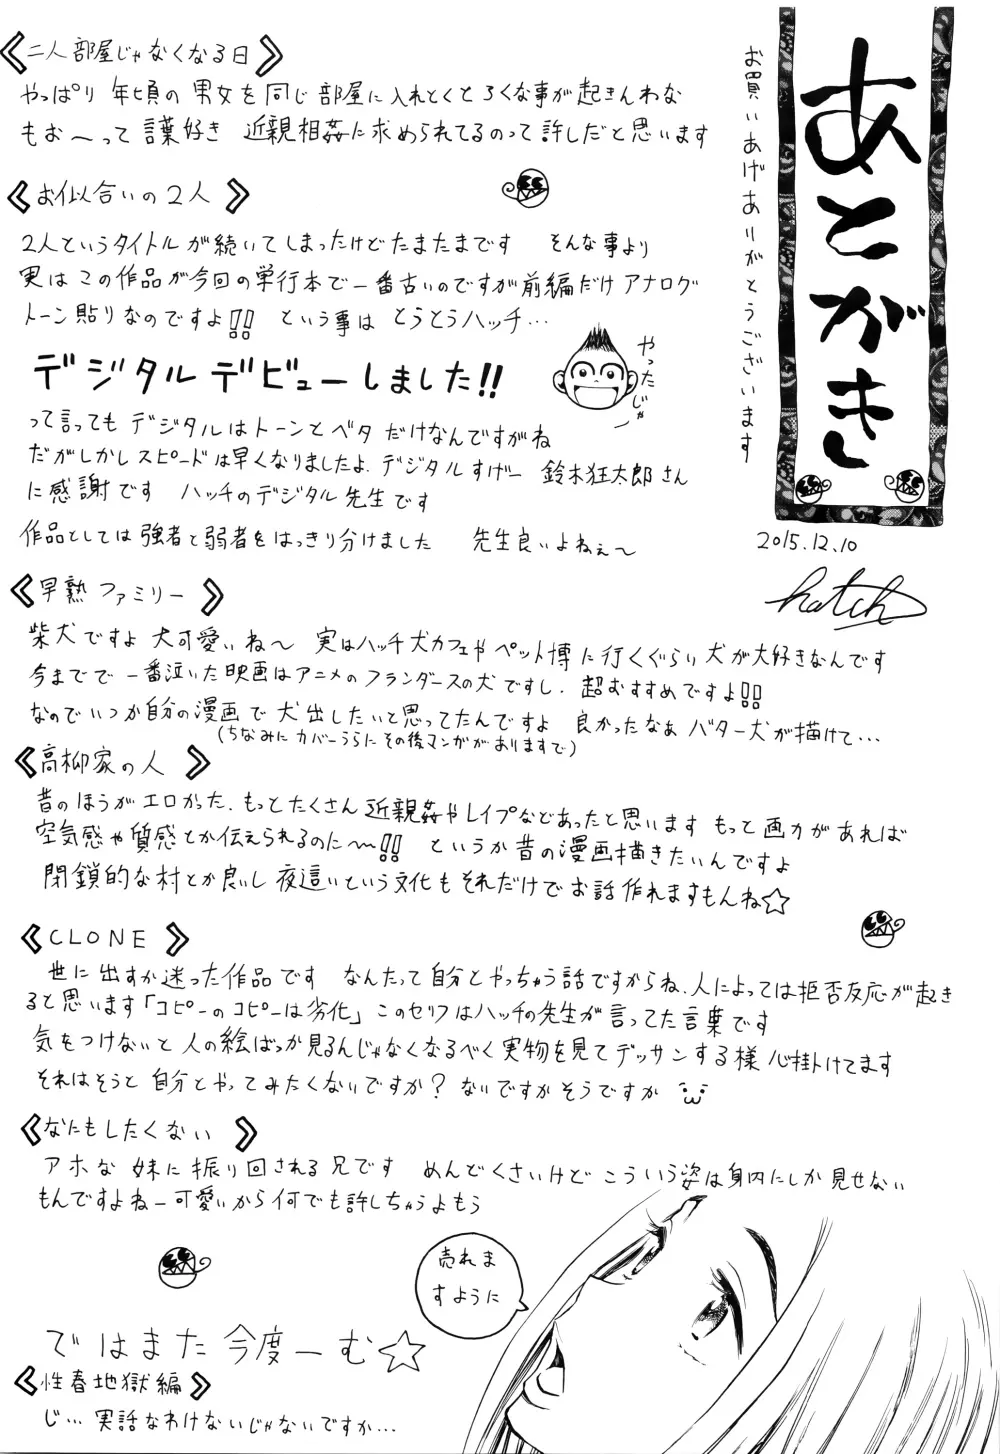 あとがき
お買いあげありがとうございます
2015.12.10
hatch
《二人部屋じゃなくなる日》
やっぱり 年頃の 男女を同じ部屋に入れとくとろくな事が起きんわな
もお〜って 言葉好き 近親相姦に求められてるのって許しだと思います
《お似合いの2人》
2人というタイトルが続いてしまったけどたまたまです そんな事より
実は この作品が今回の単行本で一番古いのですが前編だけアナログ
トーン貼りなのですよ!! という事は とうとうハッチ…
デジタルデビューしました!!
やったじゃー
って言っても デジタルはトーンとベタ だけなんですがね
だがしかしスピードは早くなりましたよ. デジタルすげー 鈴木狂太郎さん
に感謝です ハッチのデジタル先生です
作品としては強者と弱者をはっきり分けました 先生良いよねぇ〜
《早熟ファミリー》
柴犬ですよ 犬可愛いね〜 実はハッチ犬カフェやペット博に行くぐらい犬が大好きなんです
今までで一番泣いた映画はアニメのフランダースの犬ですし. 超おすすめですよ!!
なのでいつか自分の漫画で犬出したいと思ってたんですよ 良かったなぁ バター犬が描けて…
(ちなみに カバーうらにその後マンガがありますで)
《高柳家の人》
昔のほうがエロかった. もっとたくさん近親姦やレイプなどあったと思います もっと画力があれば
空気感や質感とか伝えられるのに〜!! というか昔の漫画描きたいんですよ
閉鎖的な村とか良いし 夜這いという文化も それだけでお話作れますもんね☆
《CLONE》
世に出すか迷った作品です なんたって自分とやっちゃう話ですからね. 人によっては拒否反応が起き
ると思います「コピーのコピーは劣化」このセリフはハッチの先生が言ってた言葉です
気をつけないと 人の絵ばっか見るんじゃなくなるべく実物を見てデッサンする様 心掛けてます
それはそうと 自分とやってみたくないですか? ないですかそうですか
《なにもしたくない》
アホな 妹に振り回される兄です めんどくさいけど こういう姿は身内にしか見せない
もんですよねー可愛いから何でも許しちゃうよもう
売れま
すように
ではまた今度ーむ☆
《性春地獄編》
じ… 実話なわけないじゃないですか…